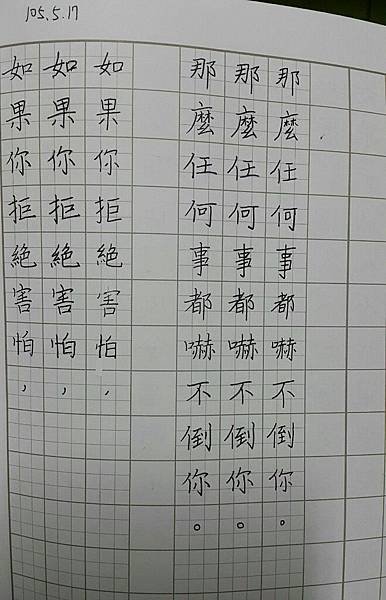 105.5.17
如果你拒絕害怕，
如果你拒絕害怕，
如果你拒絕害怕，
那麼任何事都嚇不倒你。
那麼任何事都嚇不倒你。
那麼任何事都嚇不倒你。